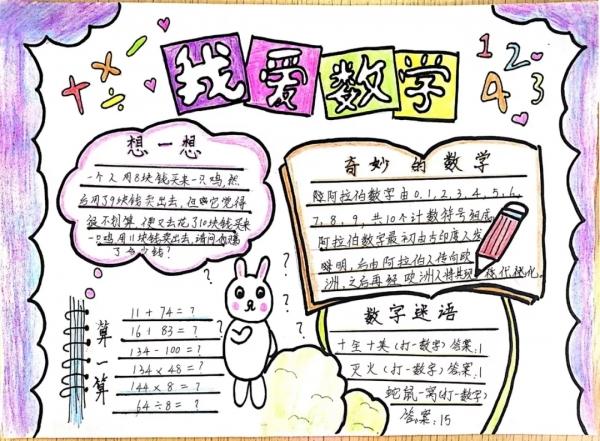 我爱数学
+ × − ÷
1 2 4 3
想一想
一个人用8块钱买来一只鸡,然
后用了9块钱卖出去,但 它觉得
很不划算,便又去花了10块钱买来
一只鸡用11块钱卖出去,请问你赚
了多少钱?
奇妙的数学
阿拉伯数字由0,1,2,3,4,5,6,
7,8,9,共10个计数符号组成
阿拉伯数字最初由古印度人发
明,后由阿拉伯人传向欧
洲,之后再经欧洲人将其现代化。
算一算
11+74=?
16+83=?
134-100=?
134×48=?
144×8=?
64÷8=?
? ? ? ? ? ?
数字谜语
十全十美(打一数字)答案:1
灭火(打一数字)答案:1
蛇鼠一窝(打一数字)
答案:15